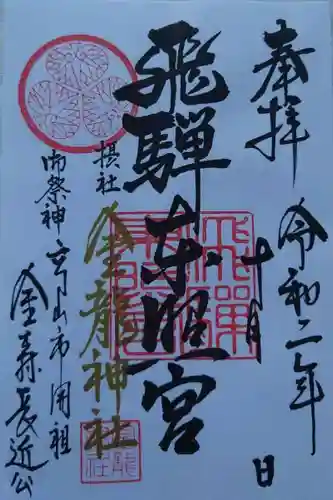 奉拝
令和二年
十月 日
飛騨東照宮
摂社
金龍神社
御祭神
高山市開祖
金森長近公
飛騨東照宮
金龍神社